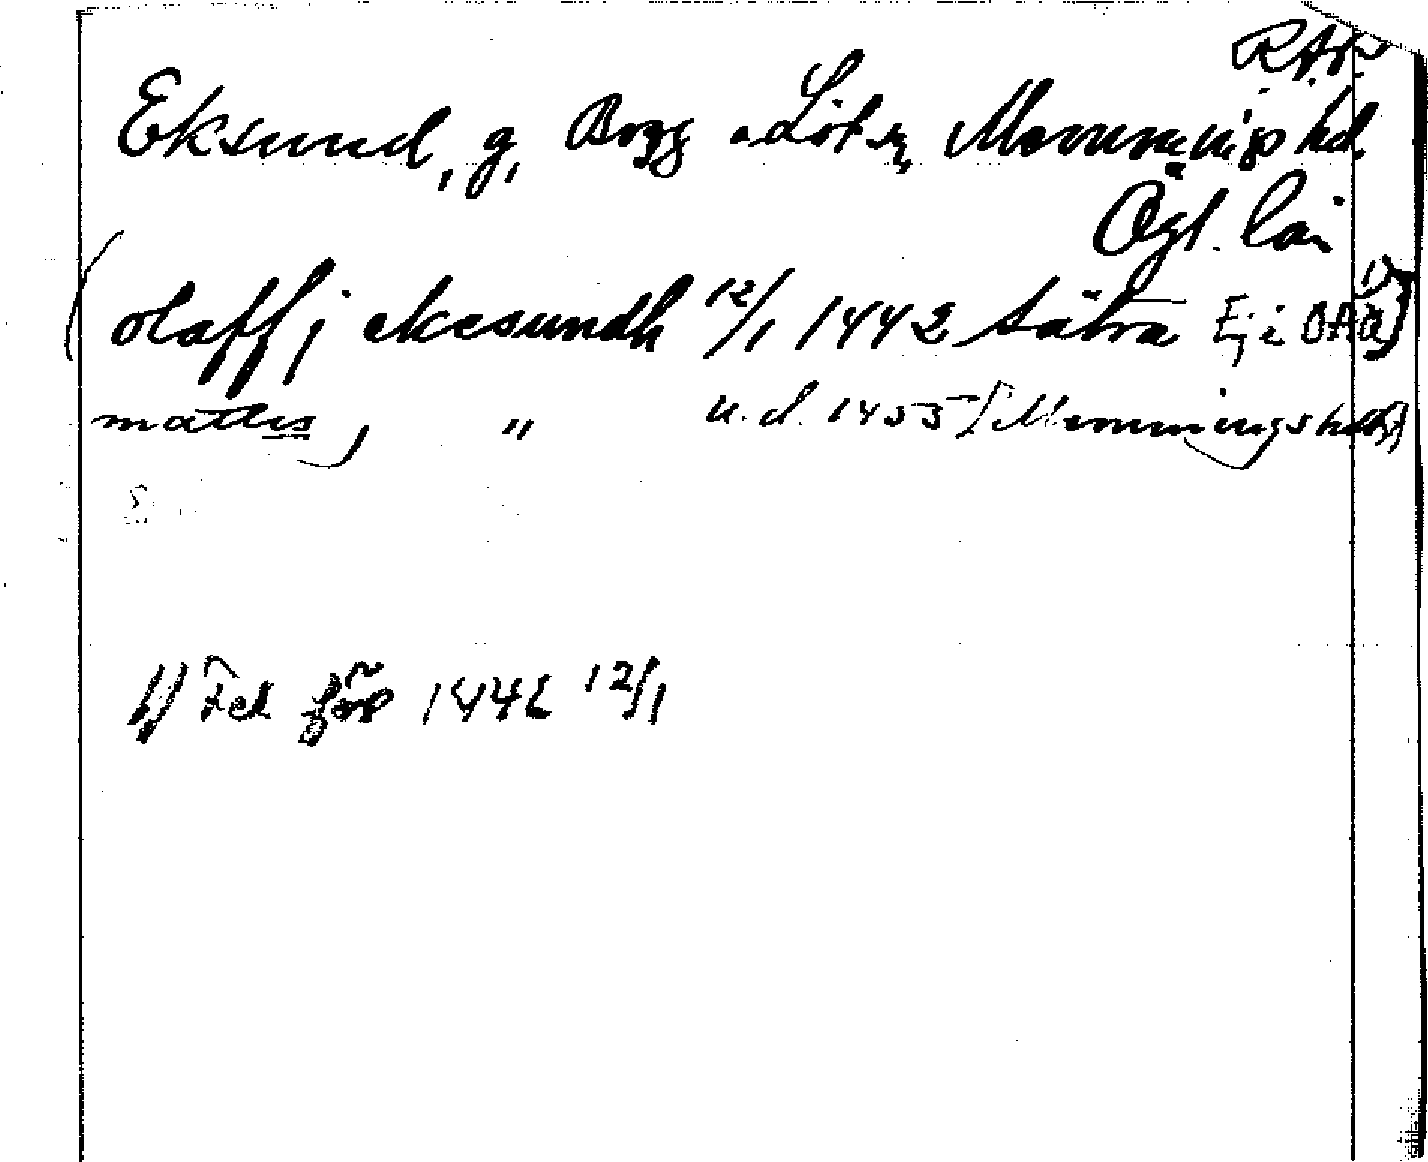 RAP.
Eksund, g, Borg o Löt sn, Memmings hd.
Ögl. län
(olaff j ekesundh 12/1 1442 Sätra Ej i OAu 1))
mattis j " u.d. 1455 [Memmings hd]
1) Fel för 1446 12/1